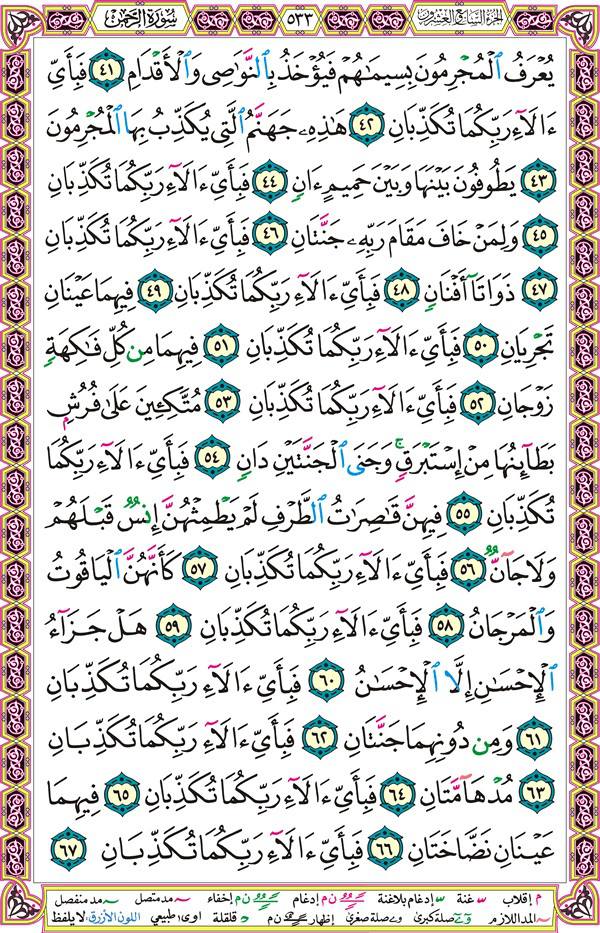 الجزء السابع والعشرون ٥٣٣ سورة الرحمن
يُعْرَفُ ٱلْمُجْرِمُونَ بِسِيمَٰهُمْ فَيُؤْخَذُ بِٱلنَّوَٰصِى وَٱلْأَقْدَامِ ٤١ فَبِأَىِّ
ءَالَآءِ رَبِّكُمَا تُكَذِّبَانِ ٤٢ هَٰذِهِۦ جَهَنَّمُ ٱلَّتِى يُكَذِّبُ بِهَا ٱلْمُجْرِمُونَ
٤٣ يَطُوفُونَ بَيْنَهَا وَبَيْنَ حَمِيمٍ ءَانٍ ٤٤ فَبِأَىِّ ءَالَآءِ رَبِّكُمَا تُكَذِّبَانِ
٤٥ وَلِمَنْ خَافَ مَقَامَ رَبِّهِۦ جَنَّتَانِ ٤٦ فَبِأَىِّ ءَالَآءِ رَبِّكُمَا تُكَذِّبَانِ
٤٧ ذَوَاتَآ أَفْنَانٍ ٤٨ فَبِأَىِّ ءَالَآءِ رَبِّكُمَا تُكَذِّبَانِ ٤٩ فِيهِمَا عَيْنَانِ
تَجْرِيَانِ ٥٠ فَبِأَىِّ ءَالَآءِ رَبِّكُمَا تُكَذِّبَانِ ٥١ فِيهِمَا مِن كُلِّ فَٰكِهَةٍ
زَوْجَانِ ٥٢ فَبِأَىِّ ءَالَآءِ رَبِّكُمَا تُكَذِّبَانِ ٥٣ مُتَّكِـِٔينَ عَلَىٰ فُرُشٍۭ
بَطَآئِنُهَا مِنْ إِسْتَبْرَقٍ ۚ وَجَنَى ٱلْجَنَّتَيْنِ دَانٍ ٥٤ فَبِأَىِّ ءَالَآءِ رَبِّكُمَا
تُكَذِّبَانِ ٥٥ فِيهِنَّ قَٰصِرَٰتُ ٱلطَّرْفِ لَمْ يَطْمِثْهُنَّ إِنسٌ قَبْلَهُمْ
وَلَا جَآنٌّ ٥٦ فَبِأَىِّ ءَالَآءِ رَبِّكُمَا تُكَذِّبَانِ ٥٧ كَأَنَّهُنَّ ٱلْيَاقُوتُ
وَٱلْمَرْجَانُ ٥٨ فَبِأَىِّ ءَالَآءِ رَبِّكُمَا تُكَذِّبَانِ ٥٩ هَلْ جَزَآءُ
ٱلْإِحْسَٰنِ إِلَّا ٱلْإِحْسَٰنُ ٦٠ فَبِأَىِّ ءَالَآءِ رَبِّكُمَا تُكَذِّبَانِ
٦١ وَمِن دُونِهِمَا جَنَّتَانِ ٦٢ فَبِأَىِّ ءَالَآءِ رَبِّكُمَا تُكَذِّبَانِ
٦٣ مُدْهَآمَّتَانِ ٦٤ فَبِأَىِّ ءَالَآءِ رَبِّكُمَا تُكَذِّبَانِ ٦٥ فِيهِمَا
عَيْنَانِ نَضَّاخَتَانِ ٦٦ فَبِأَىِّ ءَالَآءِ رَبِّكُمَا تُكَذِّبَانِ ٦٧
م إقلاب غنة إدغام بلاغنة ن م إدغام ن م إخفاء مد متصل مد منفصل
المد اللازم صلة كبرى صلة صغرى إظهار ن م قلقلة اوى؛ طبيعي اللون الأزرق: لا يلفظ